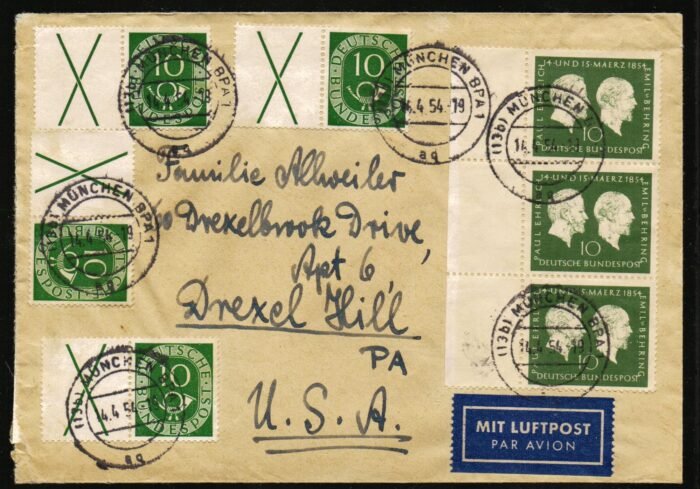 10
DEUTSCHE
BUNDESPOST
(13b) MÜNCHEN BPA 1
aq
10
DEUTSCHE
BUNDESPOST
MÜNCHEN BPA 1
4.4 54.-19
aq
14. UND 15. MAERZ 1854
PAUL EHRLICH
EMIL v. BEHRING
10
DEUTSCHE BUNDESPOST
(13b) MÜNCHEN
14.4 54
Familie Allweiler
Drexelbrook Drive,
Apt 6,
Drexel Hill
PA
U.S.A.
(13b) MÜNCHEN BPA 1
14.4
10
BUNDESPOST
14. UND 15. MAERZ 1854
PAUL EHRLICH
EMIL v. BEHRING
10
DEUTSCHE BUNDESPOST
14. UND 15. MAERZ 1854
EMIL v. BEHRING
10
DEUTSCHE BUNDESPOST
(13b) MÜNCHEN BPA 1
14.4 54.-19
aq
10
DEUTSCHE
BUNDESPOST
(13b) MÜNCHEN
4.4 54
aq
MIT LUFTPOST
PAR AVION